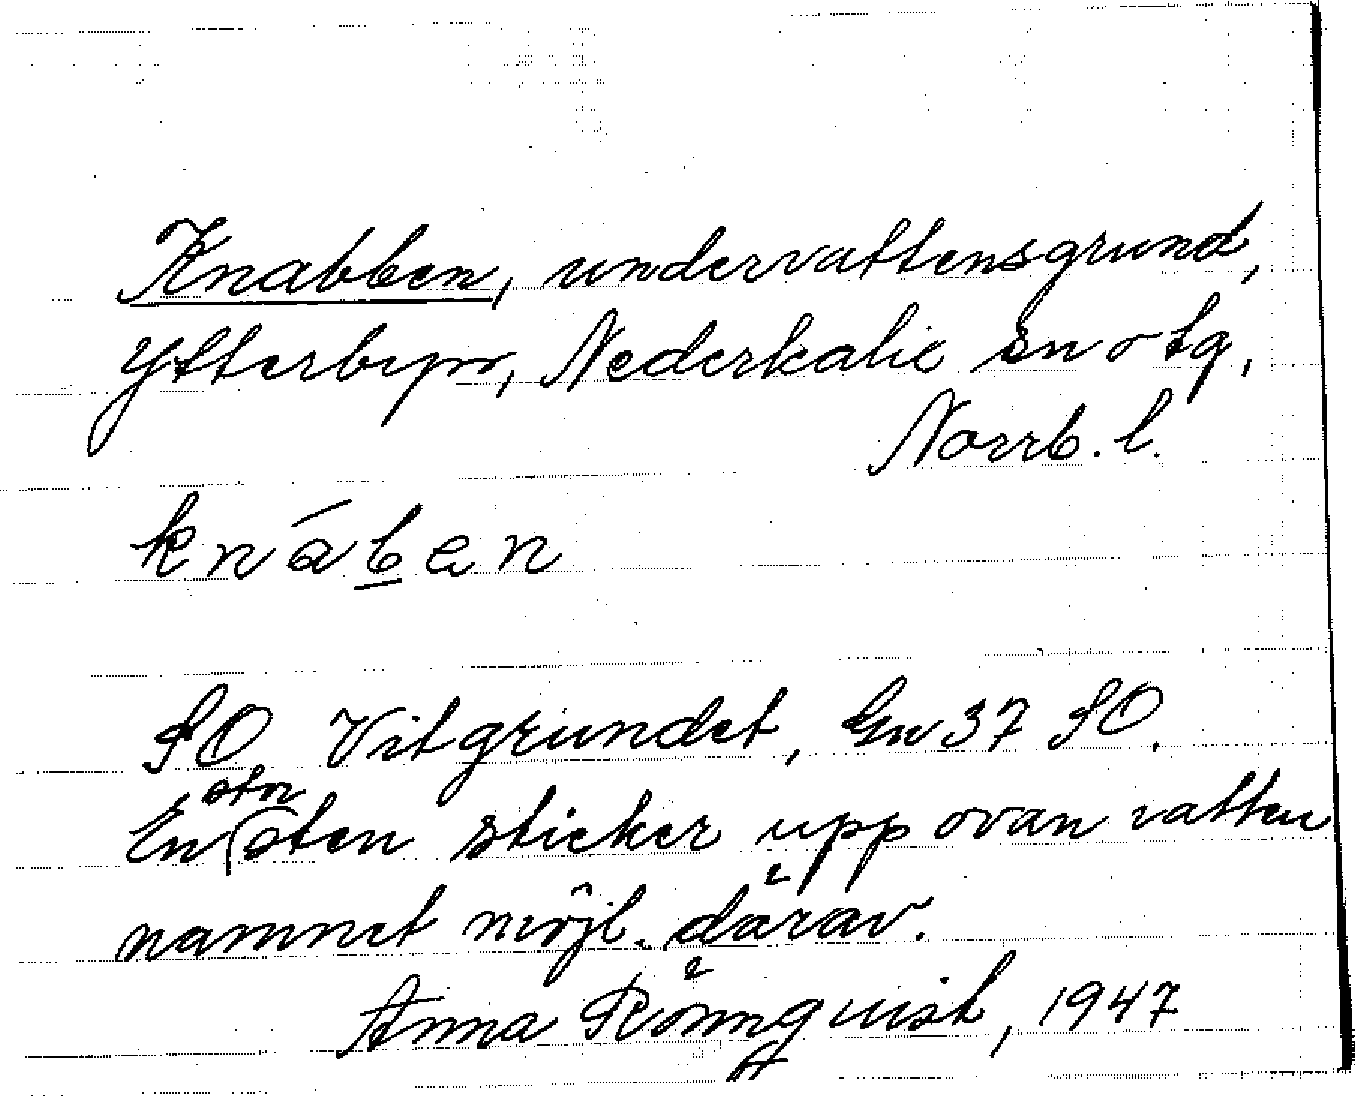 Knabben, undervattensgrund,
Ytterbyn, Nederkalix sn o tg,
Norrb. l.
knáben
SO Vitgrundet, Gn 37 SO.
En stor sten sticker upp ovan vatten
namnet möjl. därav.
Anna Rönnquist, 1947